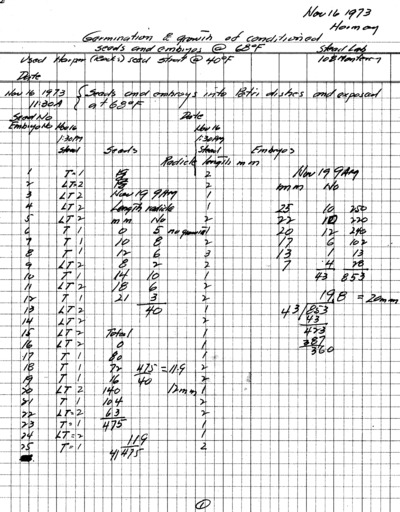 Nov 16 1973
Harmon
Germination & growth of conditioned
seeds and embryos @ 68°F
Seed Lab
Used Harper (Rocks) seed strat @ 40°F
10B Monterey
Date
Nov 16 1973 Seeds and embryos into Petri dishes and exposed
11:30A at 68°F
Seed No Date
Embryo No Nov 16 Nov 16
1:30AM 1:30AM
Seed Seeds Seed Embryos
Radicle lengths mm
1 T=1 2 Nov 19 9AM
2 LT=2 2 mm No
3 LT 2 Nov 19 9AM 1
4 LT 2 Length radicle 1 25 10 250
5 LT 2 mm No 2 22 10 220
6 T 1 0 5 no growth 1 20 12 240
7 T 1 10 8 2 17 6 102
8 T 1 12 6 3 13 1 13
9 LT 2 8 2 2 7 4 28
10 T 1 14 10 1 43 853
11 LT 2 18 6 2
12 T 1 21 3 1 19.8 = 20mm
13 LT 2 40 1 43/853
14 LT 2 2 43
15 LT 2 Total 1 423
16 LT 2 0 1 387
17 T 1 80 1 360
18 T 1 72 475 = 11.9 2
19 T 1 16 40 2
20 LT 2 140 12mm 1
21 T 1 104 2
22 LT=2 63 2
23 T=1 475 1
24 LT=2 1
25 T=1 11.9 2
41/475
1